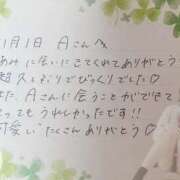 1月1日 Aさんへ
あみに会いにきてくれてありがとう
超久しおりでびっくりでした♡
また、Aさんに会うことができて
とってもうれしかったです!!
可愛いたくさんありがとう♡